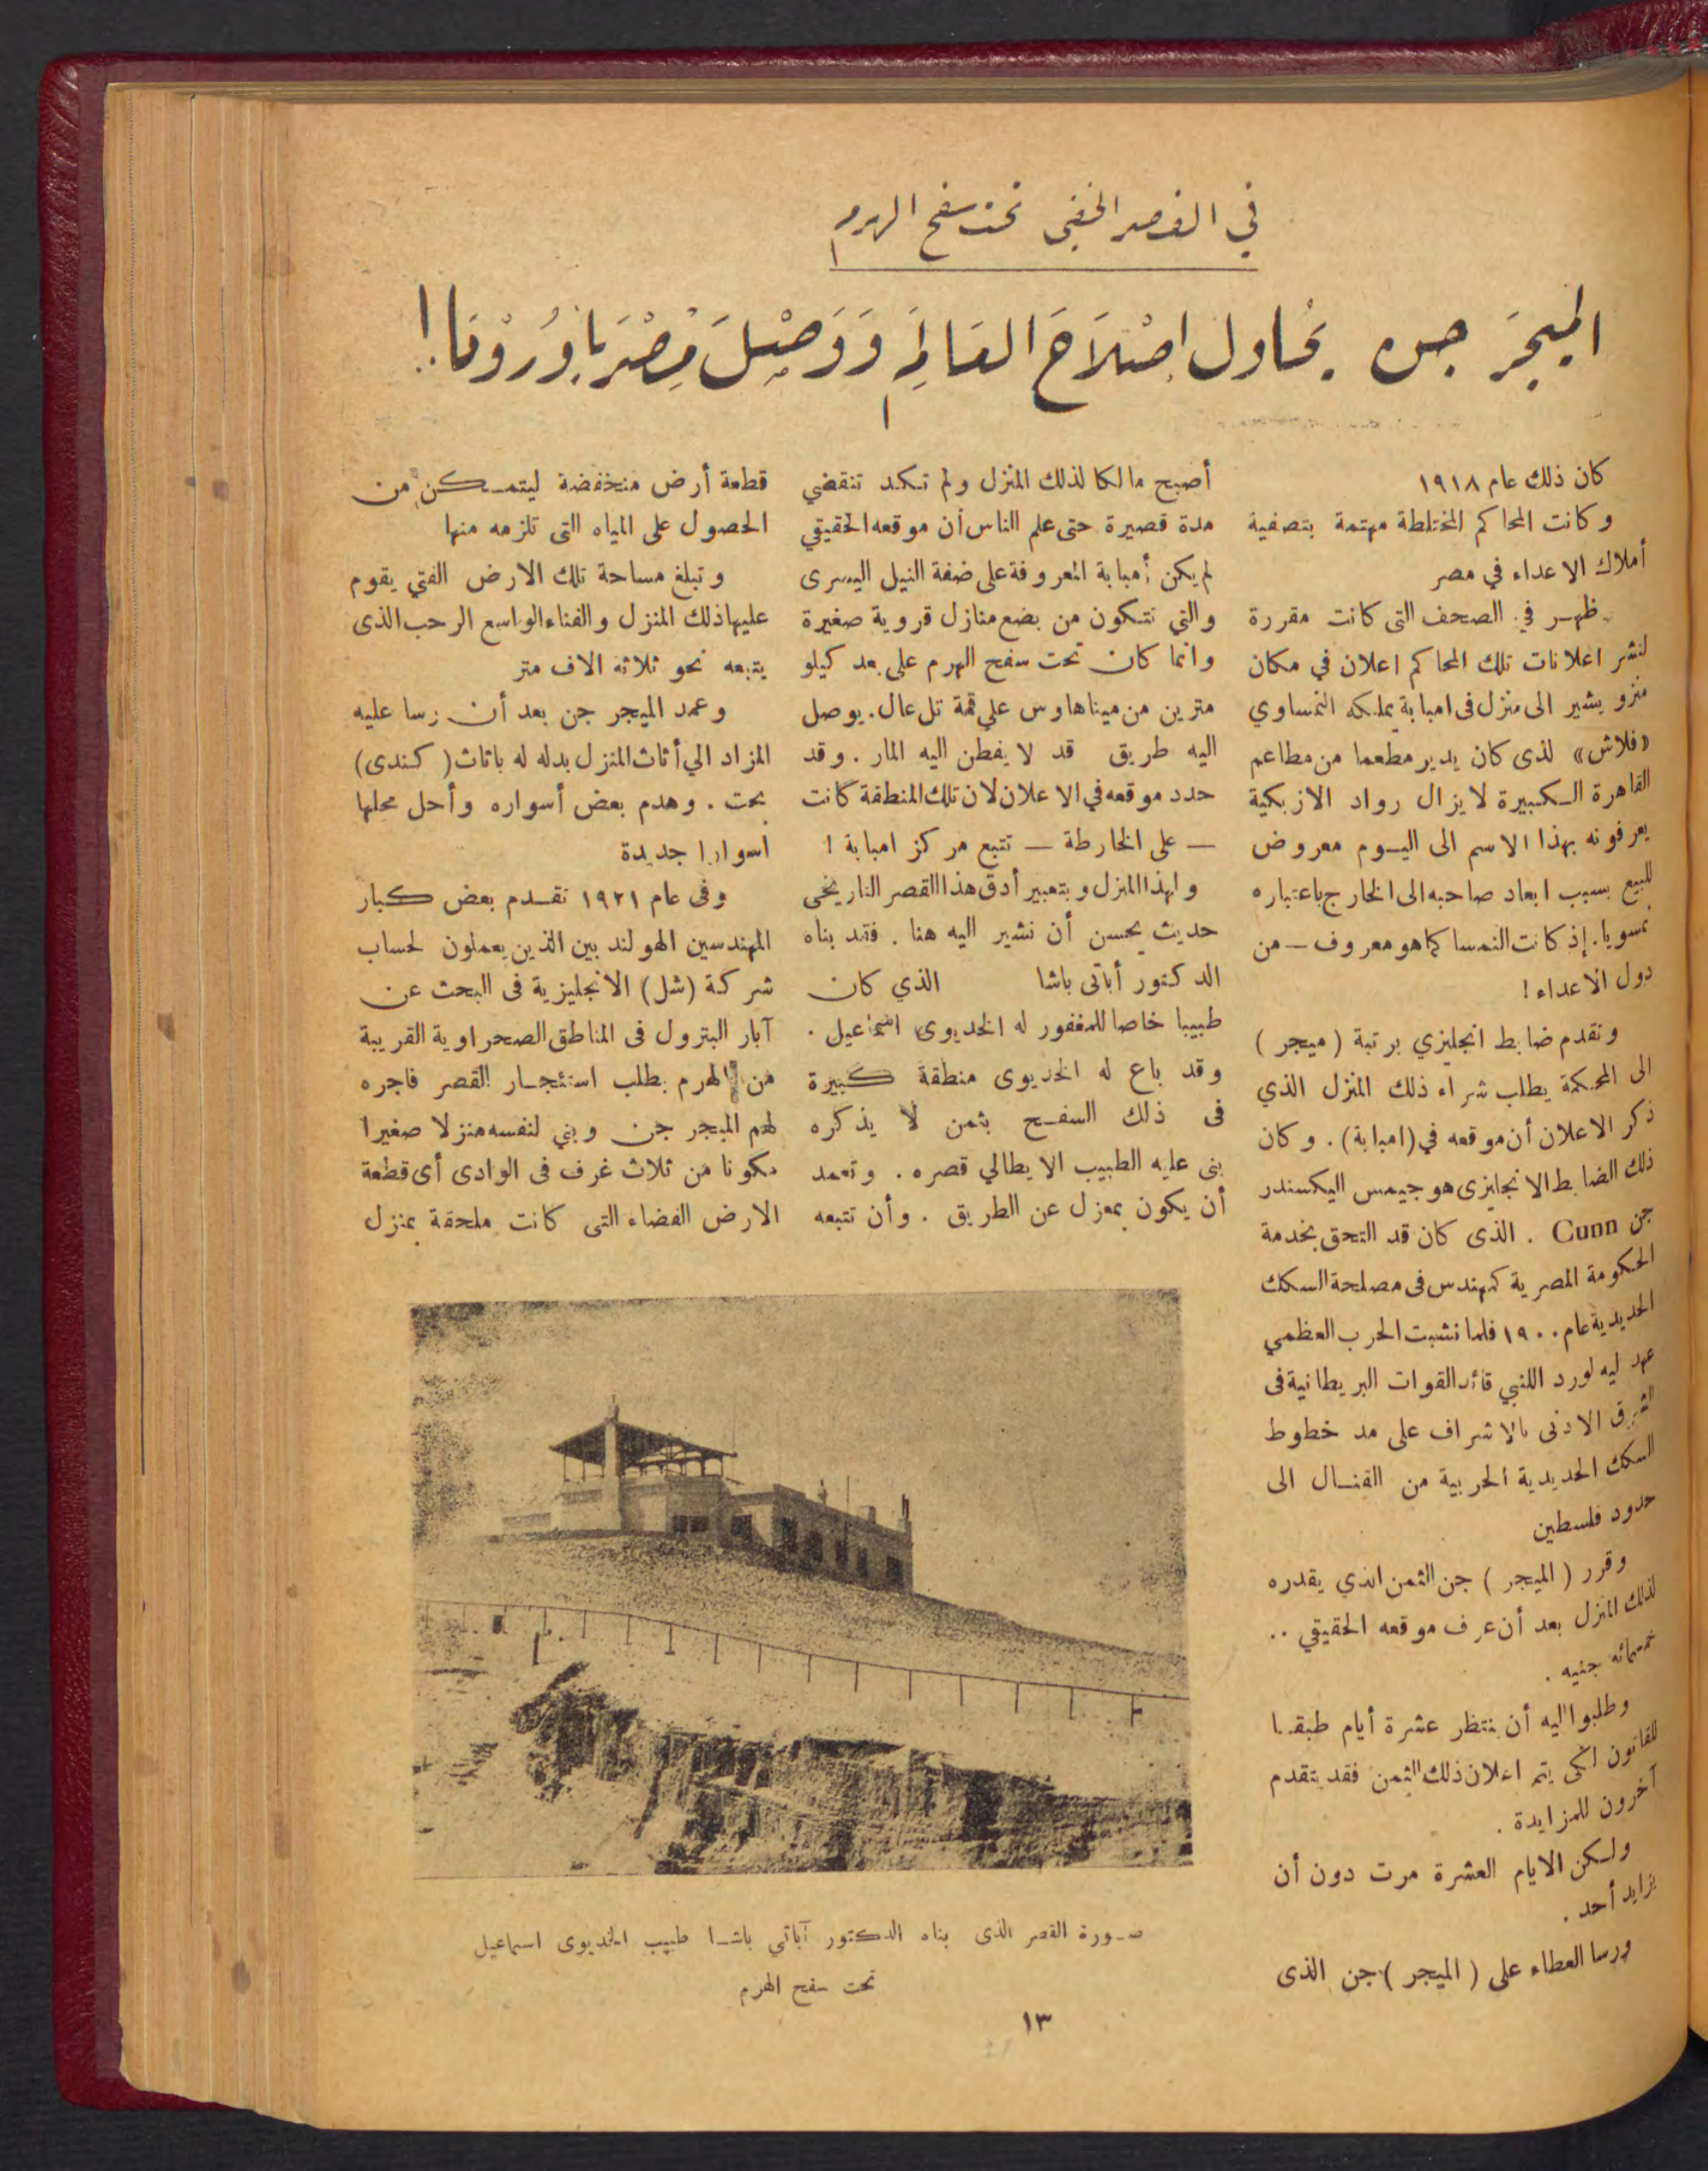 في القصر الخفي تحت سفح الهرم
الميجر جن يحاول اصلاح العالم ووصل مصر باوروبا!
كان ذلك عام ١٩١٨
وكانت المحاكم المختلطة مهتمة بتصفية
أملاك الاعداء في مصر
ظهر في الصحف التى كانت مقررة
لنشر اعلانات تلك المحاكم اعلان في مكان
منزو يشير الى منزل فى امبابة يملكه النمساوي
«فلاش» لذى كان يدير مطعما من مطاعم
القاهرة الكبيرة لايزال رواد الازبكية
يعرفونه بهذا الاسم الى اليوم معروض
للبيع بسبب ابعاد صاحبه الى الخارج باعتباره
نمسويا. إذ كانت النمسا كما هو معروف — من
دول الاعداء !
وتقدم ضابط انجليزي برتبة ( ميجر )
الى المحكمة يطلب شراء ذلك المنزل الذي
ذكر الاعلان أن موقعه في (امبابة) . وكان
ذلك الضابط الانجليزى هو جيمس اليكسندر
جن Gunn . الذى كان قد التحق بخدمة
الحكومة المصرية كمهندس فى مصلحة السكك
الحديدية عام ١٩٠٠ فلما نشبت الحرب العظمي
عهد ليه لورد اللنبي قائد القوات البريطانية فى
الشرق الادنى بالاشراف على مد خطوط
السكك الحديدية الحربية من القنال الى
حدود فلسطين
وقرر ( الميجر ) جن الثمن الذي يقدره
لذلك المنزل بعد أن عرف موقعه الحقيقي ..
خمسمائه جنيه .
وطلبوا اليه أن ينتظر عشرة أيام طبقا
للقانون لكى يتم اعلان ذلك الثمن فقد يتقدم
آخرون للمزايدة .
ولكن الايام العشرة مرت دون أن
يزايد أحد .
ورسا العطاء على ( الميجر ) جن الذى
أصبح مالكا لذلك المنزل ولم تكد تنقضي
مدة قصيرة حتى علم الناس أن موقعه الحقيقي
لم يكن أمبابة المعروفة على ضفة النيل اليسرى
والتي تتكون من بضع منازل قروية صغيرة
وانما كان تحت سفح الهرم على بعد كيلو
مترين من ميناهاوس علي قمة تل عال. يوصل
اليه طريق قد لا يفطن اليه المار . وقد
حدد موقعه في الاعلان لان تلك المنطقة كانت
— على الخارطة — تتبع مركز امبابة !
ولهذا المنزل وبتعبير أدق هذا القصر التاريخى
حديث يحسن أن نشير اليه هنا . فقد بناه
الدكتور أباتى باشا الذي كان
طبيبا خاصا للمغفور له الخديوى اسماعيل .
وقد باع له الخديوى منطقة كبيرة
فى ذلك السفح بثمن لا يذكره
بنى عليه الطبيب الايطالي قصره . وتعمد
أن يكون بمعزل عن الطريق . وأن تتبعه
قطعة أرض منخفضة ليتمكن من
الحصول على المياه التى تلزمه منها
وتبلغ مساحة تلك الارض الفتي يقوم
عليها ذلك المنزل والفناء الواسع الرحب الذى
يتبعه نحو ثلاثة الاف متر
وعمد الميجر جن بعد أن رسا عليه
المزاد الي أثاث المنزل بدله له باثاث ( كندى )
بحت . وهدم بعض أسواره وأحل محلها
اسوارا جديدة
وفى عام ١٩٢١ تقدم بعض كبار
المهندسين الهولند بين الذين يعملون لحساب
شركة ( شل ) الانجليزية فى البحث عن
آبار البترول فى المناطق الصحراوية القريبة
من الهرم بطلب استئجار القصر فاجره
لهم الميجر جن وبني لنفسه منزلا صغيرا
مكونا من ثلاث غرف فى الوادى أى قطعة
الارض الفضاء التى كانت ملحقة بمنزل
صورة القصر الذى بناه الدكتور آباتي باشا طبيب الخديوى اسماعيل
تحت سفح الهرم
١٣